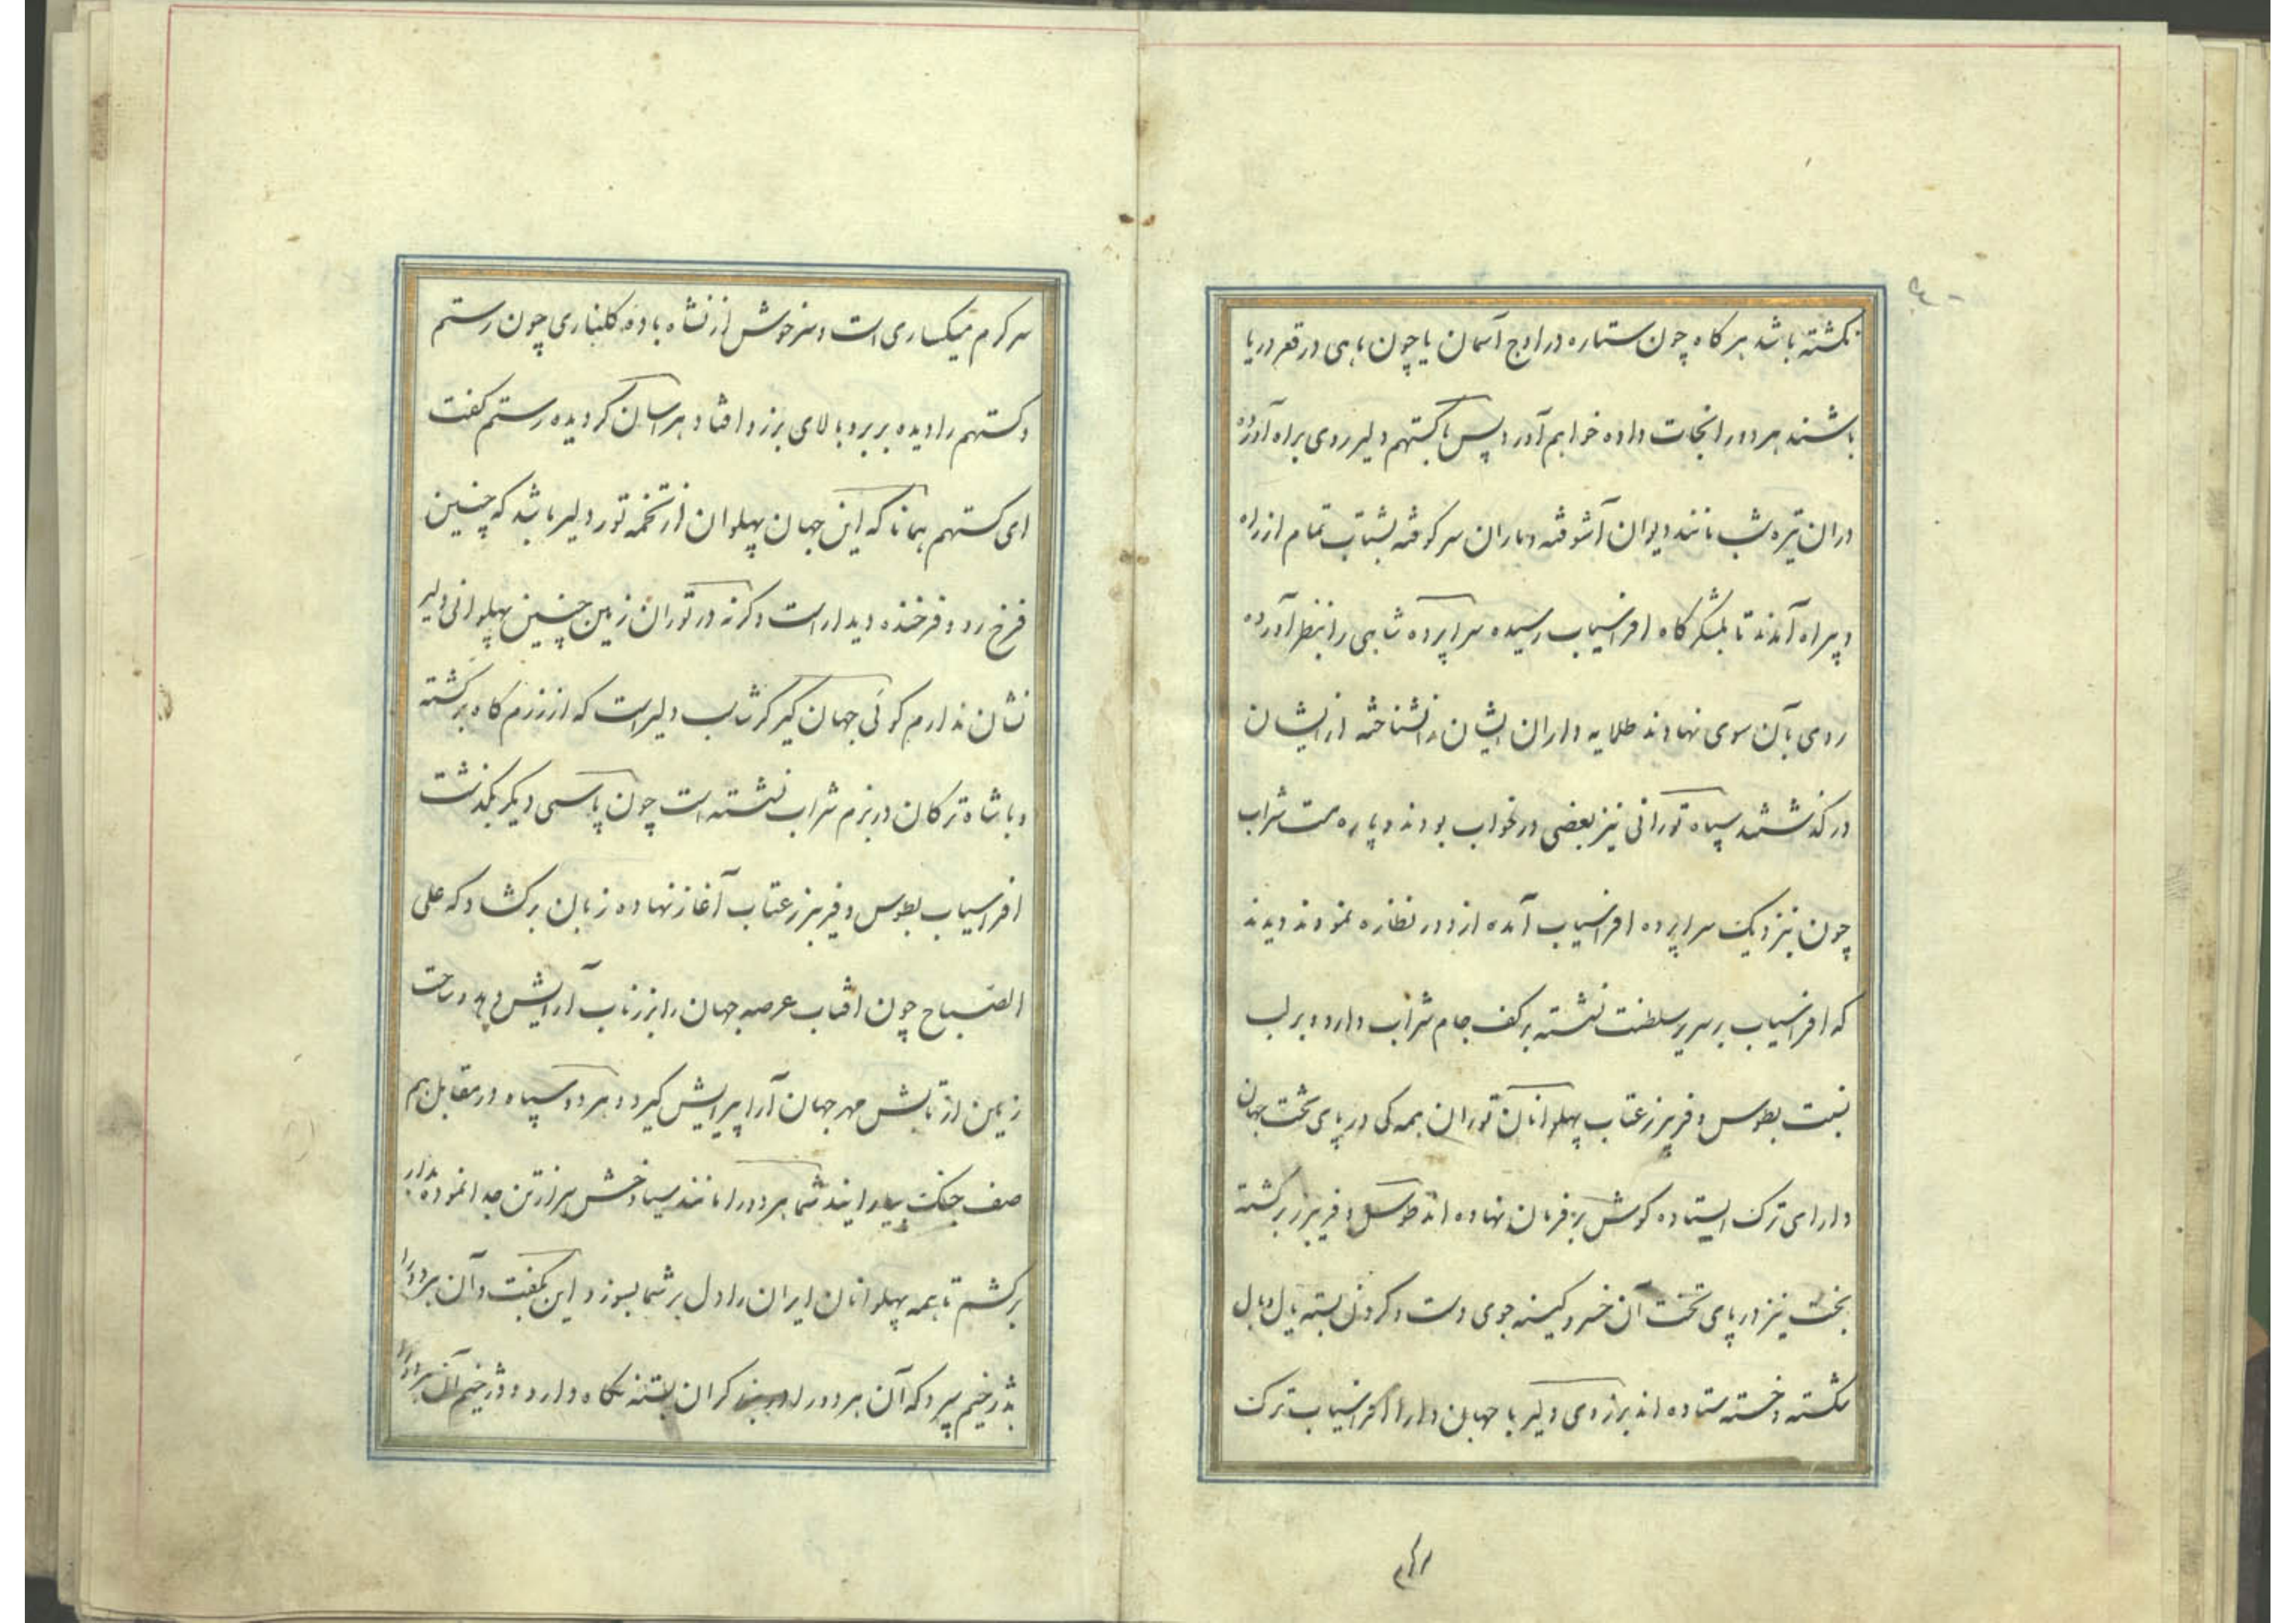 نکشته باشد هر کاه چون ستاره در اوج آسمان یا چون ماهی در قعر دریا
باشند هر دو را نجات داده خواهم آورد پس با کستهم دلیر روی براه آورده
در ان تیره شب مانند دیوان آشوفته و ماران سر کوفته بشتاب تمام از راه
و بیراه آمدند تا بلشکر کاه افراسیاب رسیده سراپرده شاهی را بنظر آورده
روی بآن سوی نهادند طلایه داران ایشان را نشناخته از ایشان
در کذشتند سپاه تورانی نیز بعضی در خواب بودند و پاره مست شراب
چون بنزدیک سراپرده افراسیاب آمده از دور نظاره نمودند دیدند
که افراسیاب بر سریر سلطنت نشسته بر کف جام شراب دارد و بر لب
نسبت بطوس و فریبرز عتاب پهلوانان توران همه کی در پای تخت جهان
دارای ترک ایستاده کوش بر فرمان نهاده اند طوس و فریبرز بر کشته
بخت نیز در پای تخت آن خسرو کینه جوی دست و کردن بسته یال و بال
شکسته و خسته ستاده اند برزوی دلیر با جهان دارا افراسیاب ترک
سر کرم
سر کرم میکساری است و سرخوش از نشاه باده کلناری چون رستم
و کستهم را دیده بر برز و بالای برزو افتاد هراسان کردیده رستم کفت
ای کستهم همانا که این جهان پهلوان از تخمه تور دلیر باشد که چنین
فرخ رو و فرخنده دیدار است و کرنه در توران زمین چنین پهلوانی دلیر
نشان ندارم کوئی جهان کیر کرشاسب دلیر است که از رزم کاه بر کشته
و با شاه ترکان در بزم شراب نشسته است چون پاسی دیکر بکذشت
افراسیاب بطوس و فریبرز عتاب آغاز نهاده زبان بر کشاد که علی
الصباح چون افتاب عرصه جهان را بزر ناب آرایش دهد و ساحت
زمین از تابش مهر جهان آرا پیرایش کیرد و هر دو سپاه در مقابل هم
صف جنک بیارایند شما هر دو را مانند سیاوخش سر از تن جدا نموده بدار
بر کشم تا همه پهلوانان ایران را دل بر شما بسوزد این بکفت و آن هر دو را
بدژخیم سپرد که آن هر دو را در بند کران بسته نکاه دارد و دژخیم آن هر دو را